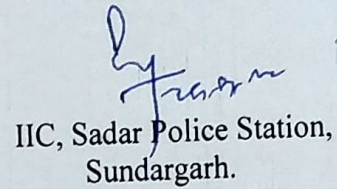 IIC, Sadar Police Station,
Sundargarh.